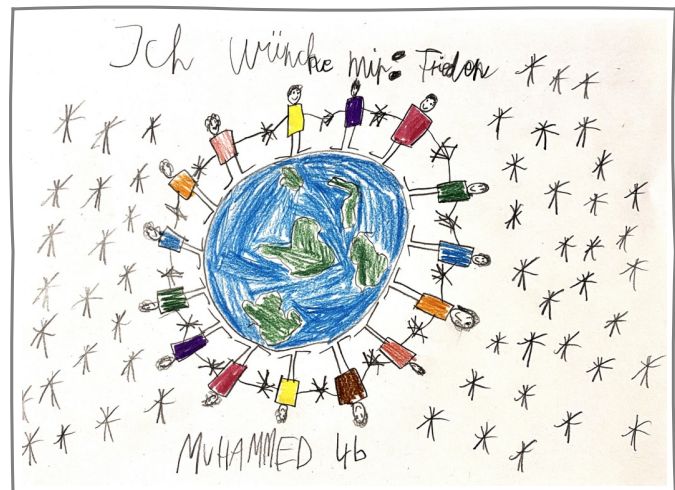 Ich Wüncke mir: Frieden
MUHAMMED 4b